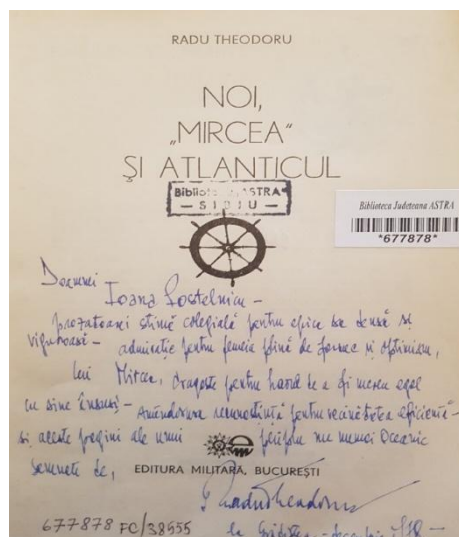 RADU THEODORU
NOI,
„MIRCEA“
ȘI ATLANTICUL
Biblioteca ASTRA
— SIBIU —
Biblioteca Județeana ASTRA
*677878*
Doamnei
Ioana Postelnicu –
prozatoarei stimă colegială pentru epica sa densă și
viguroasă – admirație pentru femeia plină de farmec și optimism,
lui Mircea, dragoste pentru harul de a fi mereu egal
cu sine însuși – Amândurora recunoștință pentru vecinătatea eficientă –
și aceste pagini ale unui periplu nu numai Oceanic
semnate de,
EDITURA MILITARĂ, BUCUREȘTI
Radu Theodoru
677878 FC/38555
la